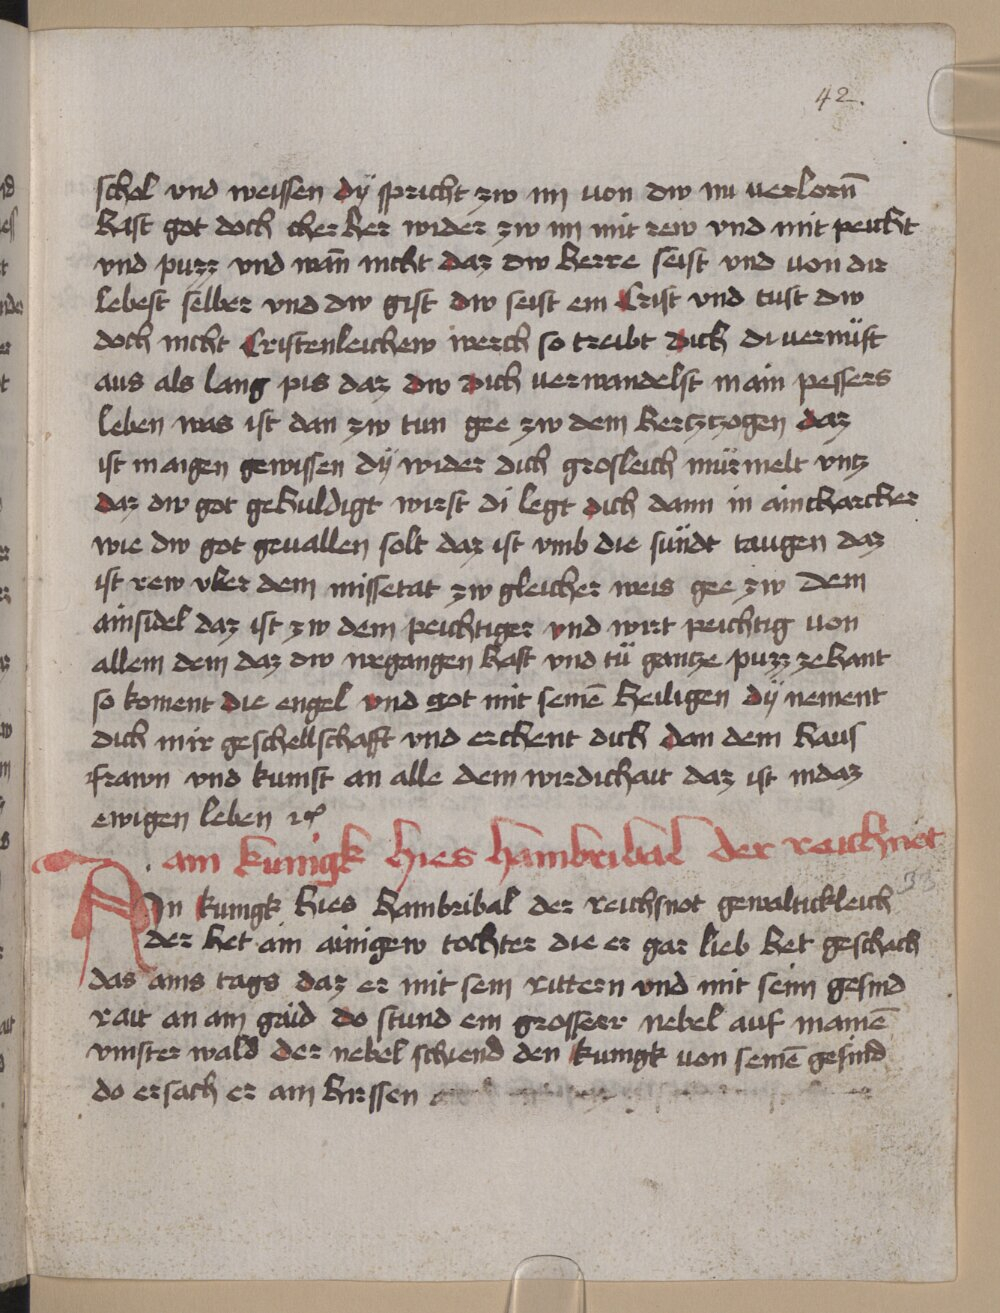 42.
schol vnd weissen dÿ spricht zw im von dw im verlorn̄
hast got doch cher her wider zw im mit rew vnd mit peicht
vnd puzz vnd wan̄ nicht daz dw herre seist vnd von dir
lebest selber vnd dw gist dw seist ein Crist vnd tust dw
doch nicht Cristenleichew werch so treibt dich di vernüft
aus als lang pis daz dw dich verwandelst in ain pessers
leben was ist dan zw tun gee zw dem hertztzogen daz
ist in aigen gewissen dÿ wider dich grosleich mürmelt vntz
daz dw got gehuldigt wirst di legt dich dann in ain charcher
wie dw got geuallen solt daz ist vmb die sündt taugen daz
ist rew vber dem missetat zw gleicher weis gee zw dem
ainsidel daz ist zw dem peichtiger vnd wirt peichtig von
allem dem daz dw wegangen hast vnd tü gantze puzz zehant
so koment die engel vnd got mit seinē heiligen dÿ nement
dich in ir geschellschafft vnd erchent dich dan dem haus
frawn vnd kumst an alle dem wirdichait daz ist in daz
ewigen leben
ain kunigk hies hambribal der reichsnot
33
Ain kunigk hies hambribal der reichsnot gewaltickleich
der het ain ainigew tochter die er gar lieb het geschach
das ains tags daz er mit sein rittern vnd mit seim gesind
rait an am grüd do stund ein grosser nebel auf in ainē
vinster wald der nebel schiend den kunigk von seinē gesind
do ersach er ain hirssen